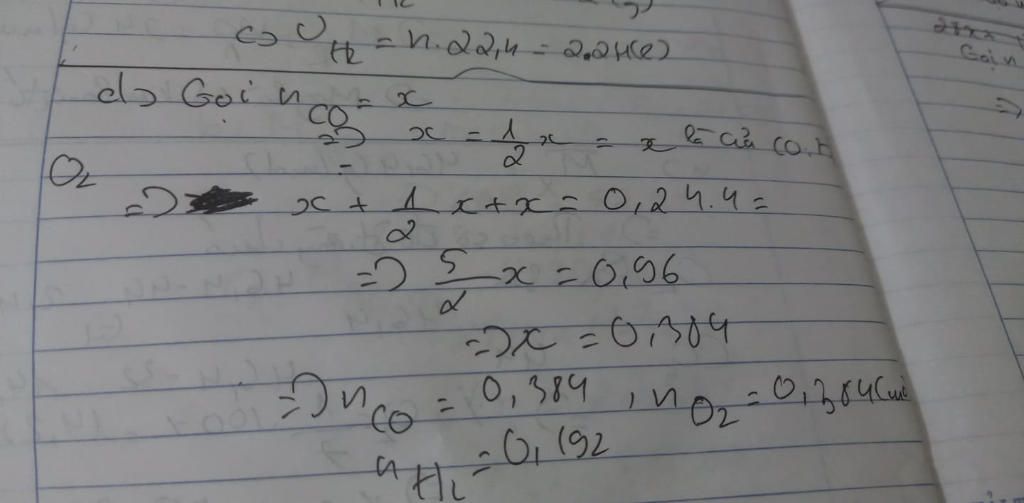 c) V H2 = n.22,4 = 2.24(l)
d) Gọi n CO = x
=> x = 1/2 x = x là của CO,
O2
=> x + 1/2 x + x = 0,24.4 =
=> 5/2 x = 0,96
=> x = 0,384
=> n CO = 0,384 , n O2 = 0,384(mol
n H2 = 0,192
Gọi n
=>